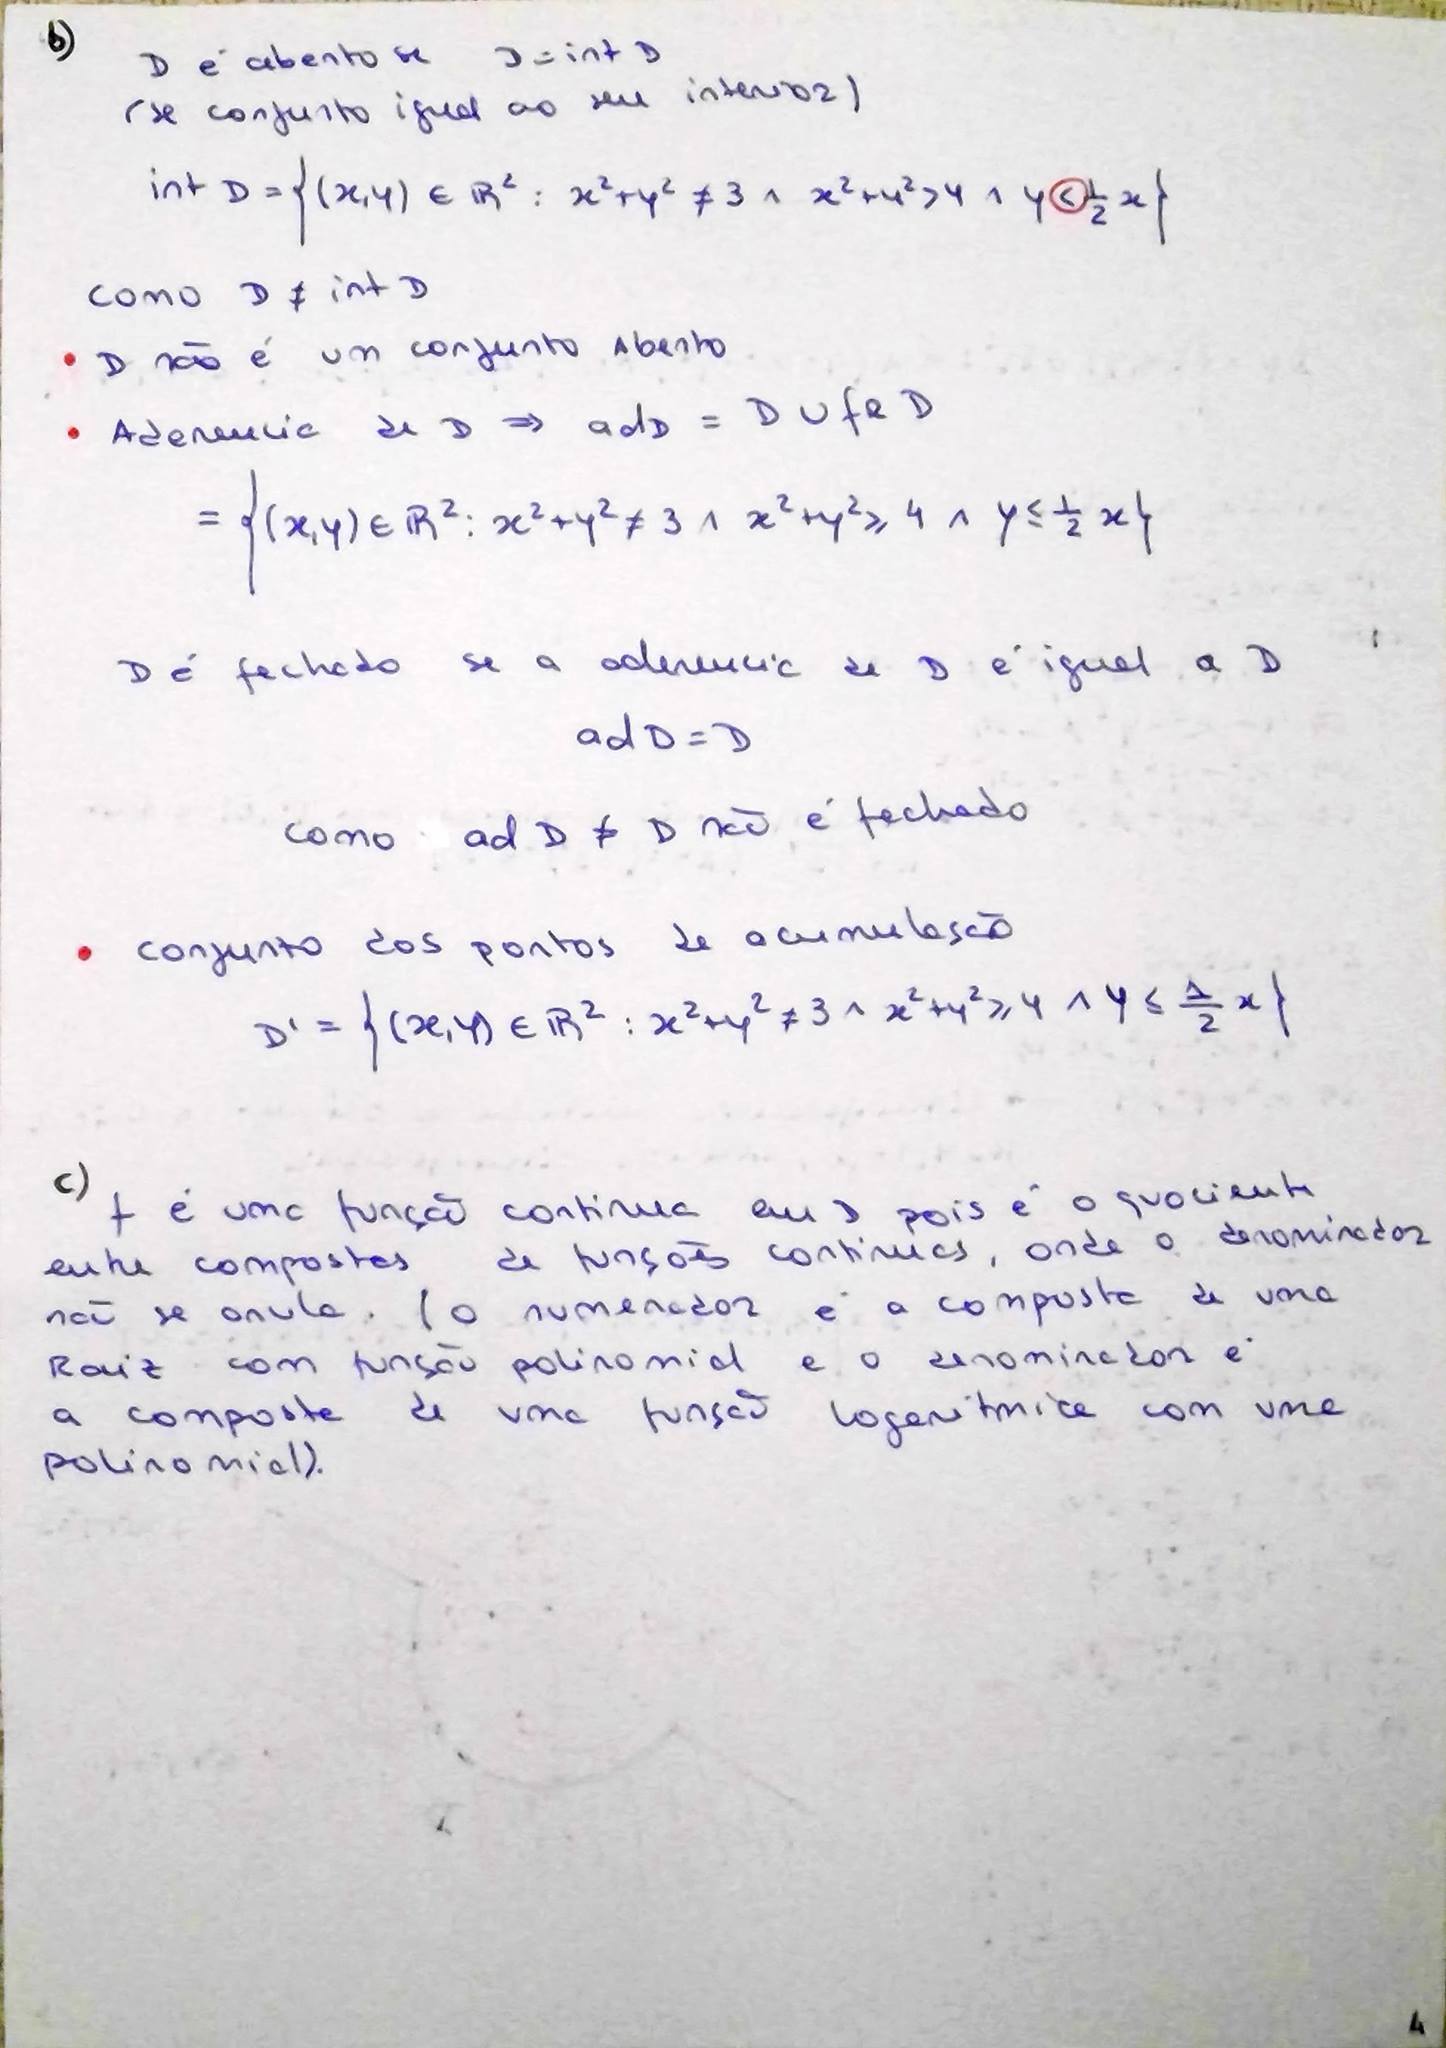 b)
D é aberto se D = int D
(se conjunto igual ao seu interior)
int D = {(x,y) ∈ ℝ² : x²+y² ≠ 3 ∧ x²+y² > 4 ∧ y < 1/2 x}
como D ≠ int D
• D não é um conjunto Aberto
• Aderencia de D ⇒ adD = D ∪ fr D
= {(x,y) ∈ ℝ² : x²+y² ≠ 3 ∧ x²+y² ≥ 4 ∧ y ≤ 1/2 x}
D é fechado se a aderencia de D é igual a D
ad D = D
como ad D ≠ D não é fechado
• conjunto dos pontos de acumulação
D' = {(x,y) ∈ ℝ² : x²+y² ≠ 3 ∧ x²+y² ≥ 4 ∧ y ≤ 1/2 x}
c)
f é uma função continua em D pois é o quociente
entre compostas de funções continuas, onde o denominador
não se anula. (o numerador é a composta de uma
Raiz com função polinomial e o denominador é
a composta de uma função logaritmica com uma
polinomial).
4